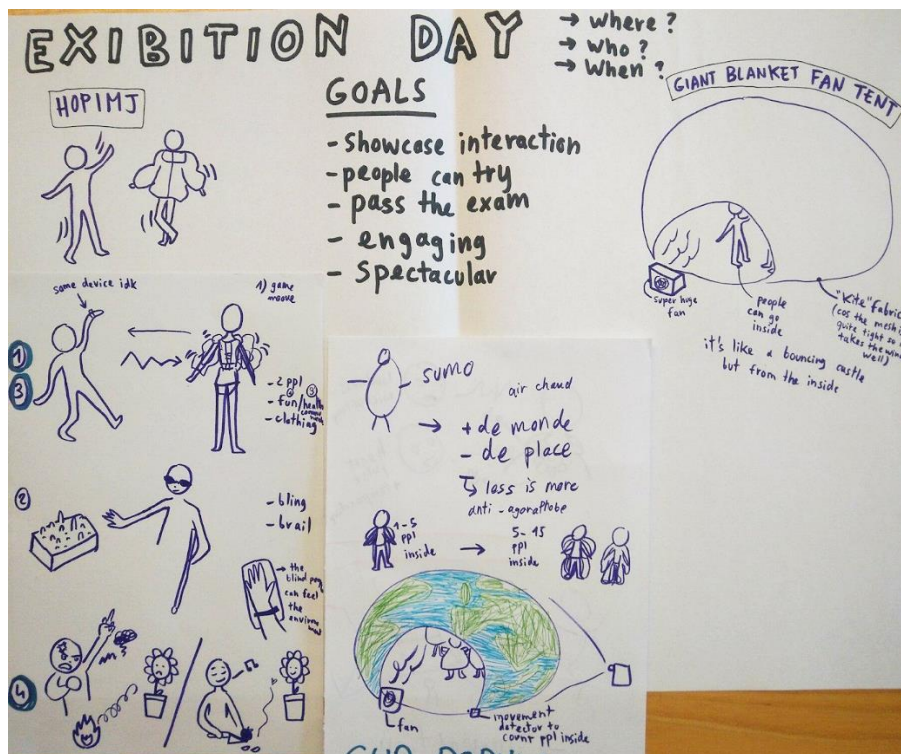 EXIBITION DAY
→ where ?
→ who ?
→ When ?
HOPIMJ
GOALS
- Showcase interaction
- people can try
- pass the exam
- engaging
- Spectacular
GIANT BLANKET FAN TENT
super huge
fan
people
can go
inside
"Kite" fabric
(cos the mesh is
quite tight so
takes the wind
well)
it's like a bouncing castle
but from the inside
some device idk
1) game
moove
1
3
- 2 ppl
- fun/health
- clothing
2
- bling
- brail
→ the
blind
can feel
the
4
SUMO
air chaud
→ + de monde
- de place
↳ less is more
anti-agoraphobe
1-5
ppl
inside
→
5-15
ppl
inside
fan
movement
detector to
count ppl inside